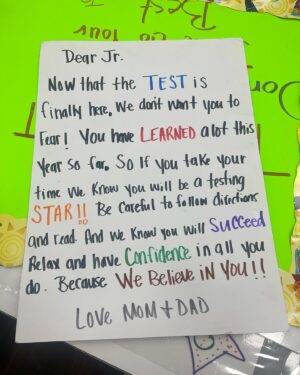 Dear Jr.
Now that the TEST is
finally here, We don't want you to
Fear! You have LEARNED a lot this
year so far. So If you take your
time We Know you will be a testing
STAR!! Be Careful to follow directions
and read. And we Know you will Succeed
Relax and have Confidence in all you
do. Because We Believe in YOU!!
Love MOM + DAD